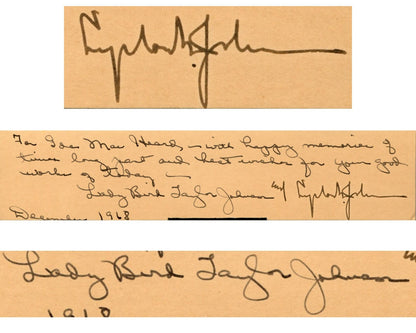 Lyndon B. Johnson
For Ida Mae Heard, — with happy memories of
times long past and best wishes for your good
work of today —
Lady Bird Taylor Johnson and Lyndon B. Johnson
December 1968
Lady Bird Taylor Johnson